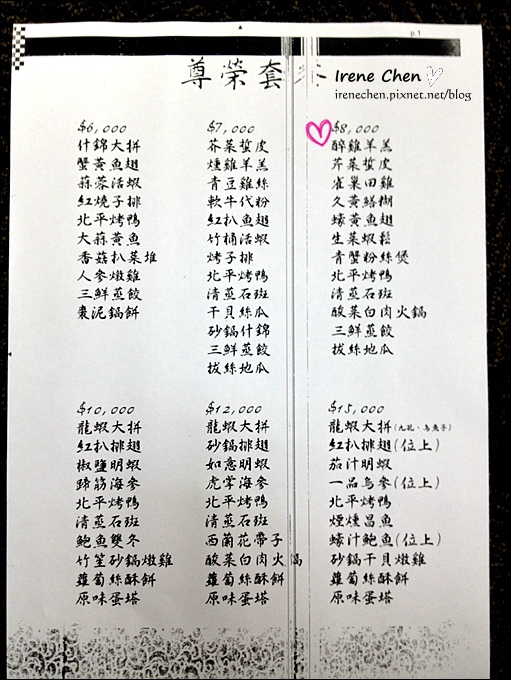 p.1
尊榮套
Irene Chen
irenechen.pixnet.net/blog
$6,000
什錦大拼
蟹黃魚翅
蒜蓉活蝦
紅燒子排
北平烤鴨
大蒜黃魚
香菇扒菜堆
人參燉雞
三鮮蒸餃
棗泥鍋餅
$7,000
芥菜蜇皮
燻雞羊羔
青豆雞絲
軟牛代粉
紅扒魚翅
竹桶活蝦
烤子排
北平烤鴨
清蒸石斑
干貝絲瓜
砂鍋什錦
三鮮蒸餃
拔絲地瓜
$8,000
醉雞羊羔
芹菜蜇皮
雀巢田雞
久黃鱔糊
蠔黃魚翅
生菜蝦鬆
青蟹粉絲煲
北平烤鴨
清蒸石斑
酸菜白肉火鍋
三鮮蒸餃
拔絲地瓜
$10,000
龍蝦大拼
紅扒排翅
椒鹽明蝦
蹄筋海參
北平烤鴨
清蒸石斑
鮑魚雙冬
竹笙砂鍋燉雞
蘿蔔絲酥餅
原味蛋塔
$12,000
龍蝦大拼
砂鍋排翅
如意明蝦
虎掌海參
北平烤鴨
清蒸石斑
西蘭花帶子
酸菜白肉火鍋
蘿蔔絲酥餅
原味蛋塔
$15,000
龍蝦大拼(九孔、烏魚子)
紅扒排翅(位上)
茄汁明蝦
一品烏參(位上)
北平烤鴨
煙燻昌魚
蠔汁鮑魚(位上)
砂鍋干貝燉雞
蘿蔔絲酥餅
原味蛋塔